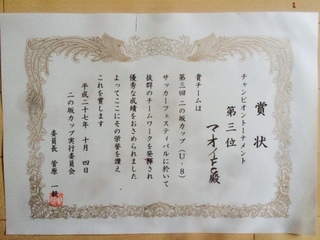 賞状
チャンピオントーナメント
第三位
殿
貴チームは
第三回 二の坂カップ（U-8）
サッカーフェスティバルに於いて
抜群のチームワークを発揮され
優秀な成績をおさめられました
よってここにその栄誉を讃え
これを賞します
平成二十七年 十月 四日
二の坂カップ実行委員会
委員長 菅原 一